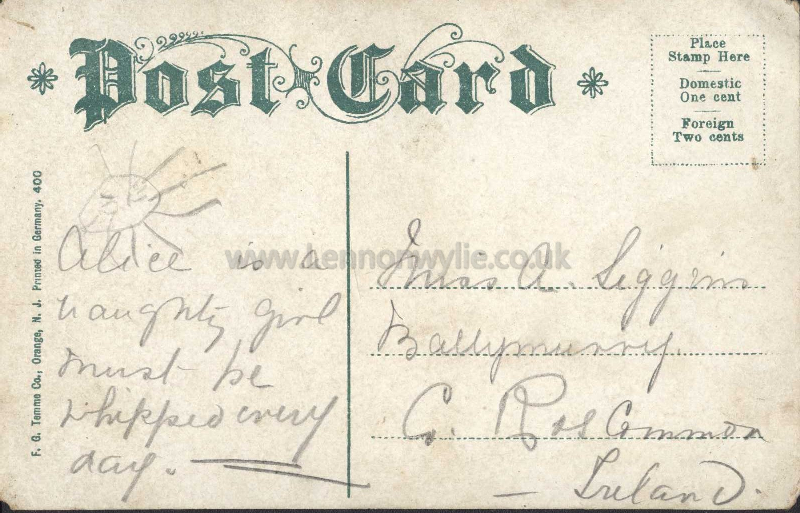 Post Card
Place
Stamp Here
Domestic
One cent
Foreign
Two cents
F. G. Temme Co., Orange, N. J. Printed in Germany. 400
www.lennonwylie.co.uk
Alice is a
naughty girl
must be
whipped every
day.
Miss A. Siggins
Ballymurry
Co. Roscommon
Ireland.